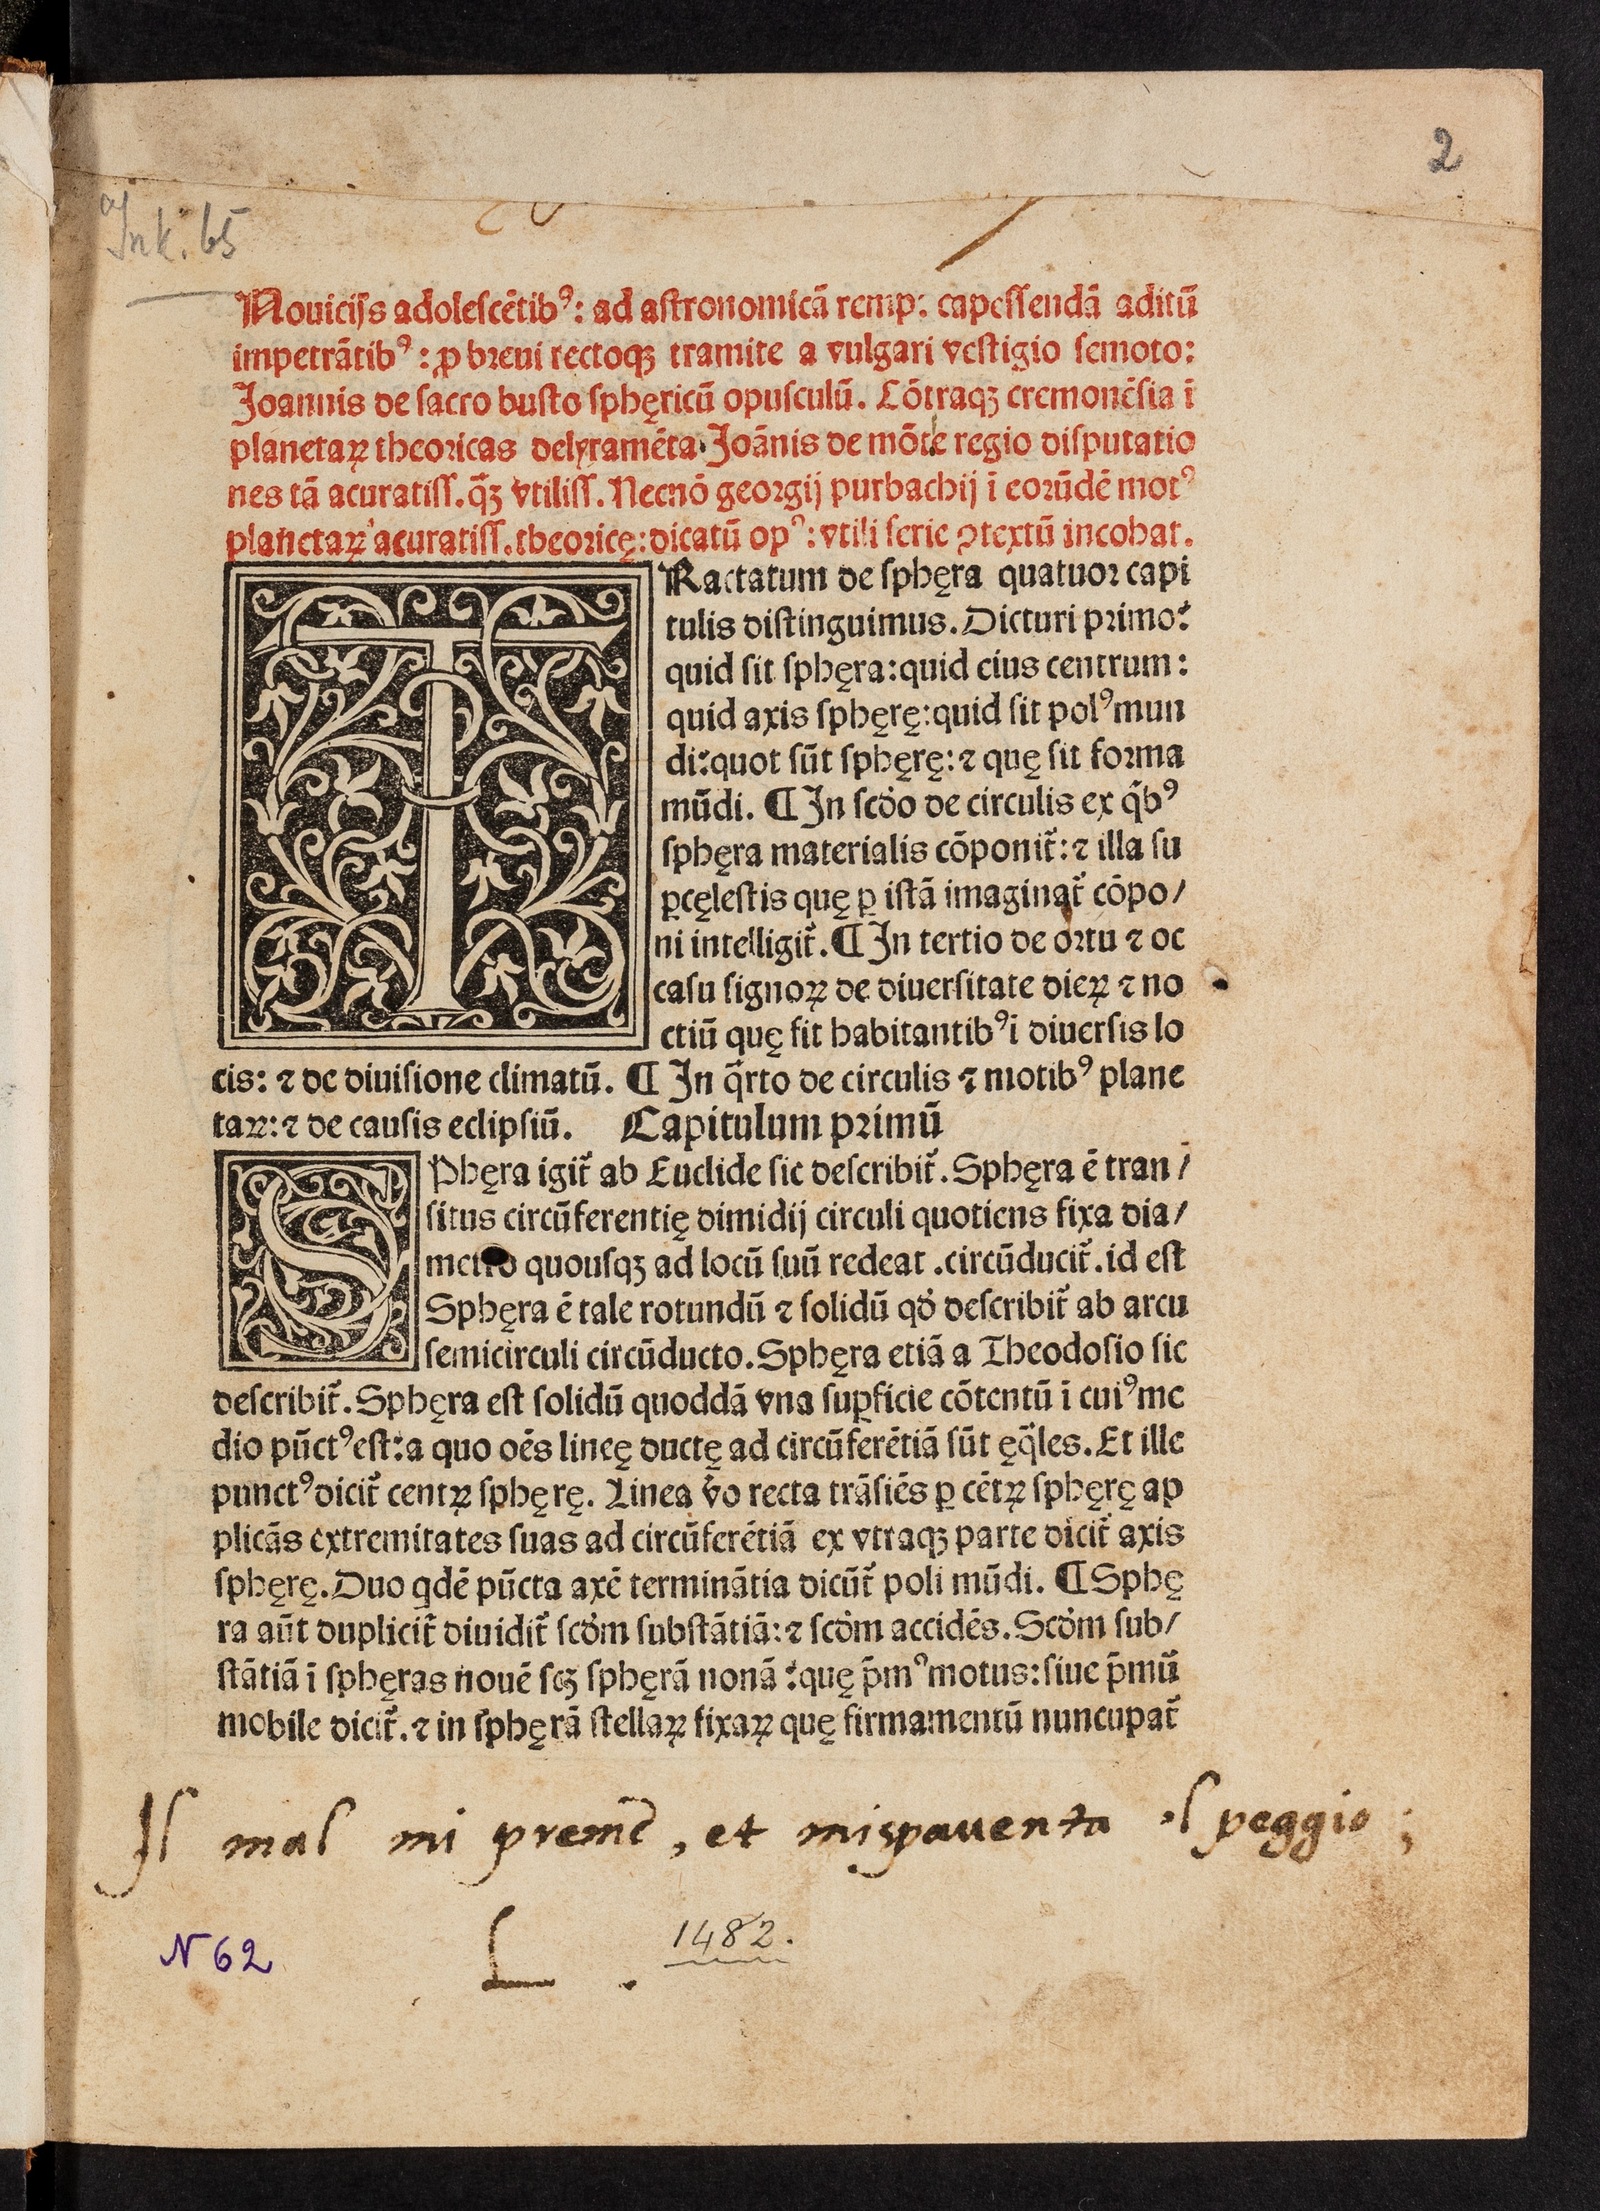 2
Ink. 65
Nouicijs adolescẽtibꝰ: ad astronomicã remp: capessendã aditũ
impetrãtibꝰ: ꝓ breui rectoqꝫ tramite a vulgari vestigio semoto:
Joannis de sacro busto sphęricũ opusculũ. Cõtraqꝫ cremonẽsia ĩ
planetaꝝ theoricas delyramẽta Joãnis de mõte regio disputatio
nes tã acuratiss. q̃ꝫ vtiliss. Necnõ georgij purbachij ĩ eorũdẽ motꝰ
planetaꝝ acuratiss. theoricę: dicatũ opꝰ: vtili serie ꝯtextũ incohat.
TRactatum de sphęra quatuor capi
tulis distinguimus. Dicturi primo:
quid sit sphęra: quid eius centrum:
quid axis sphęrę: quid sit polꝰ mun
di: quot sũt sphęrę: ⁊ quę sit forma
mũdi. ¶ In scďo de circulis ex q̃bꝰ
sphęra materialis cõponit̃: ⁊ illa su
ꝑcęlestis quę ꝑ istã imaginat̃ cõpo/
ni intelligit̃. ¶ In tertio de ortu ⁊ oc
casu signoꝝ de diuersitate dieꝝ ⁊ no
ctiũ quę fit habitantibꝰ ĩ diuersis lo
cis: ⁊ de diuisione climatũ. ¶ In q̃rto de circulis ⁊ motibꝰ plane
taꝝ: ⁊ de causis eclipsiũ. Capitulum primũ
SPhęra igit̃ ab Euclide sic describit̃. Sphęra ẽ tran/
situs circũferentię dimidij circuli quotiens fixa dia/
metro quousqꝫ ad locũ suũ redeat .circũducit̃. id est
Sphęra ẽ tale rotundũ ⁊ solidũ qď describit̃ ab arcu
semicirculi circũducto. Sphęra etiã a Theodosio sic
describit̃. Sphęra est solidũ quoddã vna suꝑficie cõtentũ ĩ cuiꝰ me
dio pũctꝰ est: a quo oẽs lineę ductę ad circũferẽtiã sũt ęq̃les. Et ille
punctꝰ dicit̃ centꝝ sphęrę. Linea ṽo recta trãsiẽs ꝑ cẽtꝝ sphęrę ap
plicãs extremitates suas ad circũferẽtiã ex vtraqꝫ parte dicit̃ axis
sphęrę. Duo qdẽ pũcta axẽ terminãtia dicũt̃ poli mũdi. ¶ Sphę
ra aũt duplicit̃ diuidit̃ scďm substãtiã: ⁊ scďm accidẽs. Scďm sub/
stãtiã ĩ sphęras nouẽ scꝫ sphęrã nonã: quę p̃mꝰ motus: siue p̃mũ
mobile dicit̃. ⁊ in sphęrã stellaꝝ fixaꝝ quę firmamentũ nuncupat̃
Il mal mi preme, et mispauenta il peggio;
N 62
L . 1482.